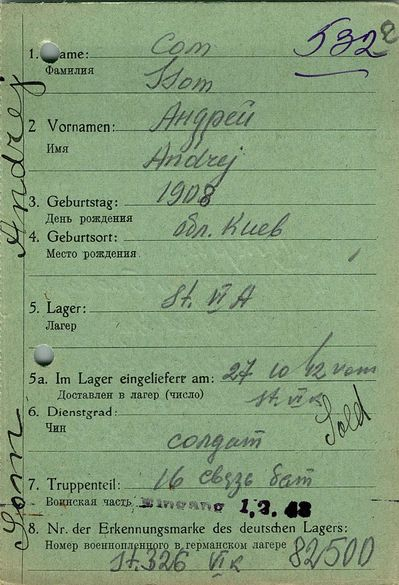 5322
1. Name: Сот
Фамилия Ssom
2 Vornamen: Андрей
Имя
Andrej
3. Geburtstag: 1908
День рождения
4. Geburtsort: обл. Киев
Место рождения
5. Lager: St. VI A
Лагер
5a. Im Lager eingeliefert am: 27 10/42 vom
Доставлен в лагер (число) St. VI K
6. Dienstgrad: Sold
Чин
солдат
7. Truppenteil: 16 связь бат
Воинская часть Eingang 1.3.43
8. Nr. der Erkennungsmarke des deutschen Lagers:
Номер военнопленного в германском лагере 82500
St. 326 VI K
Ssom Andrej